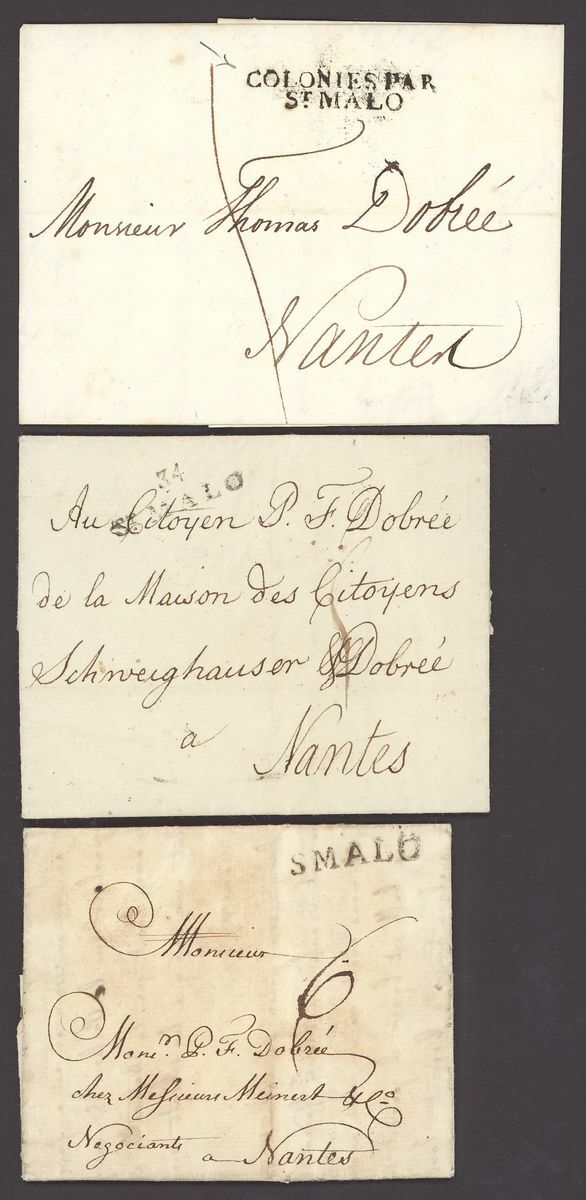 COLONIES PAR
ST MALO
Monsieur Thomas Dobrée
Nantes
34
ST MALO
Au Citoyen P. F. Dobrée
de la Maison des Citoyens
Schweighauser & Dobrée
a Nantes
SMALO
Monsieur
6
Monsr. P. F. Dobrée
chez Messieurs Meinert & Co
Negociants
a Nantes